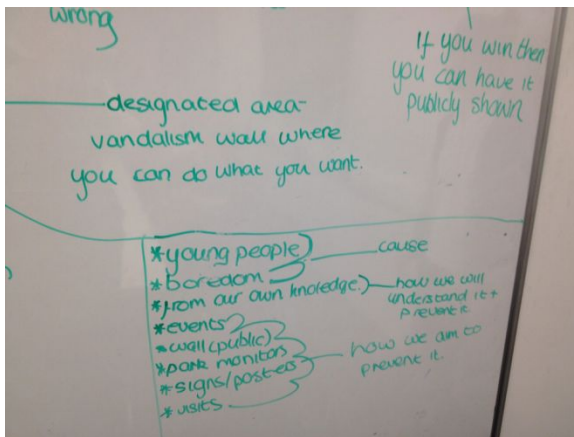 wrong
If you win then
you can have it
publicly shown
designated area-
vandalism wall where
you can do what you want.
*young people
cause
*boredom
*from our own knoledge.
how we will
understand it +
prevent it
*events
*wall (public)
*park monitors
how we aim to
prevent it.
*signs/posters
*visits